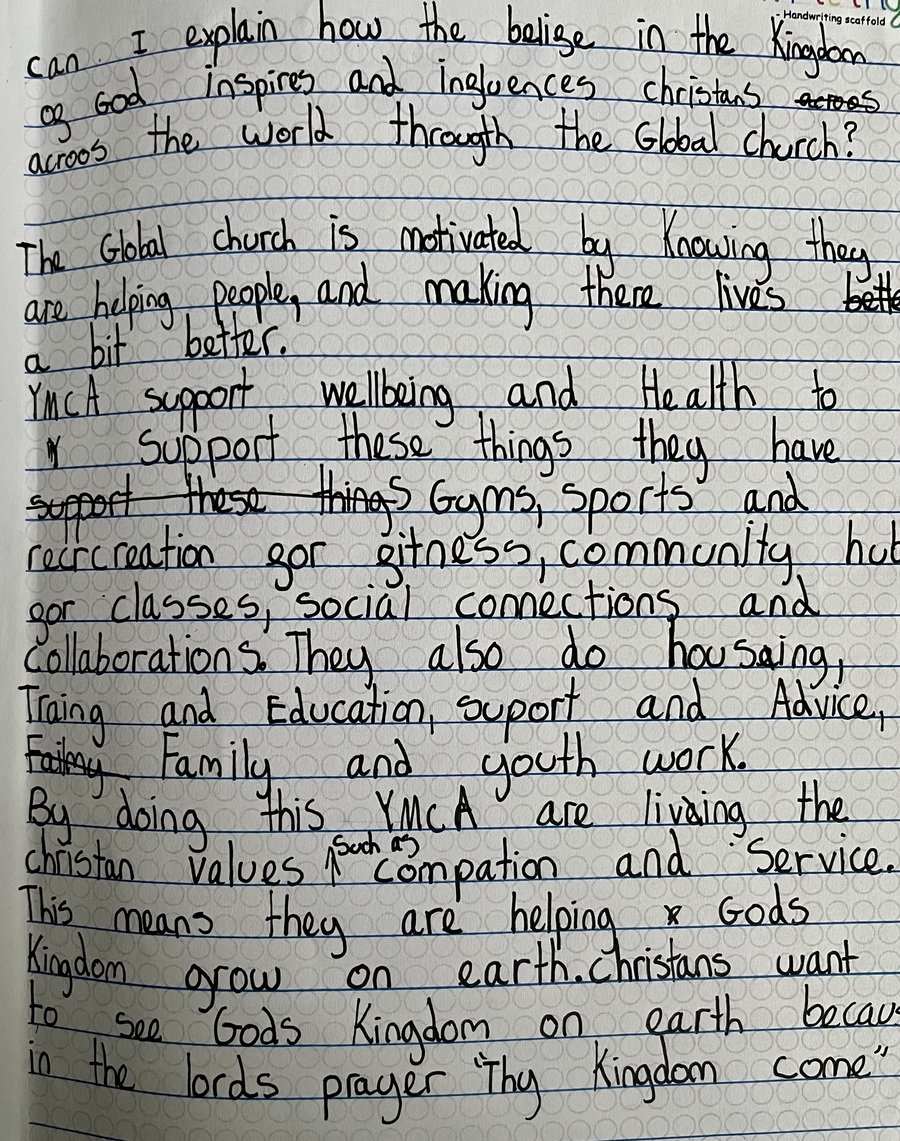 - Handwriting scaffold
can I explain how the belife in the Kingdom
of God inspires and influences christans acroos
acroos the world through the Global church?
The Global church is motivated by Knowing they
are helping people, and making there lives bette
a bit better.
YMCA support wellbeing and Health to
support these things they have
support these things Gyms, sports and
recrcreation for fitness, community hub
for classes, social connections and
collaborations. They also do housaing,
Traing and Education, suport and Advice,
Failmy Family and youth work.
By doing this YMCA are livaing the
christan values such as compation and service.
This means they are helping Gods
Kingdom grow on earth. christans want
to see Gods Kingdom on earth becau
in the lords prayer "Thy Kingdom come"